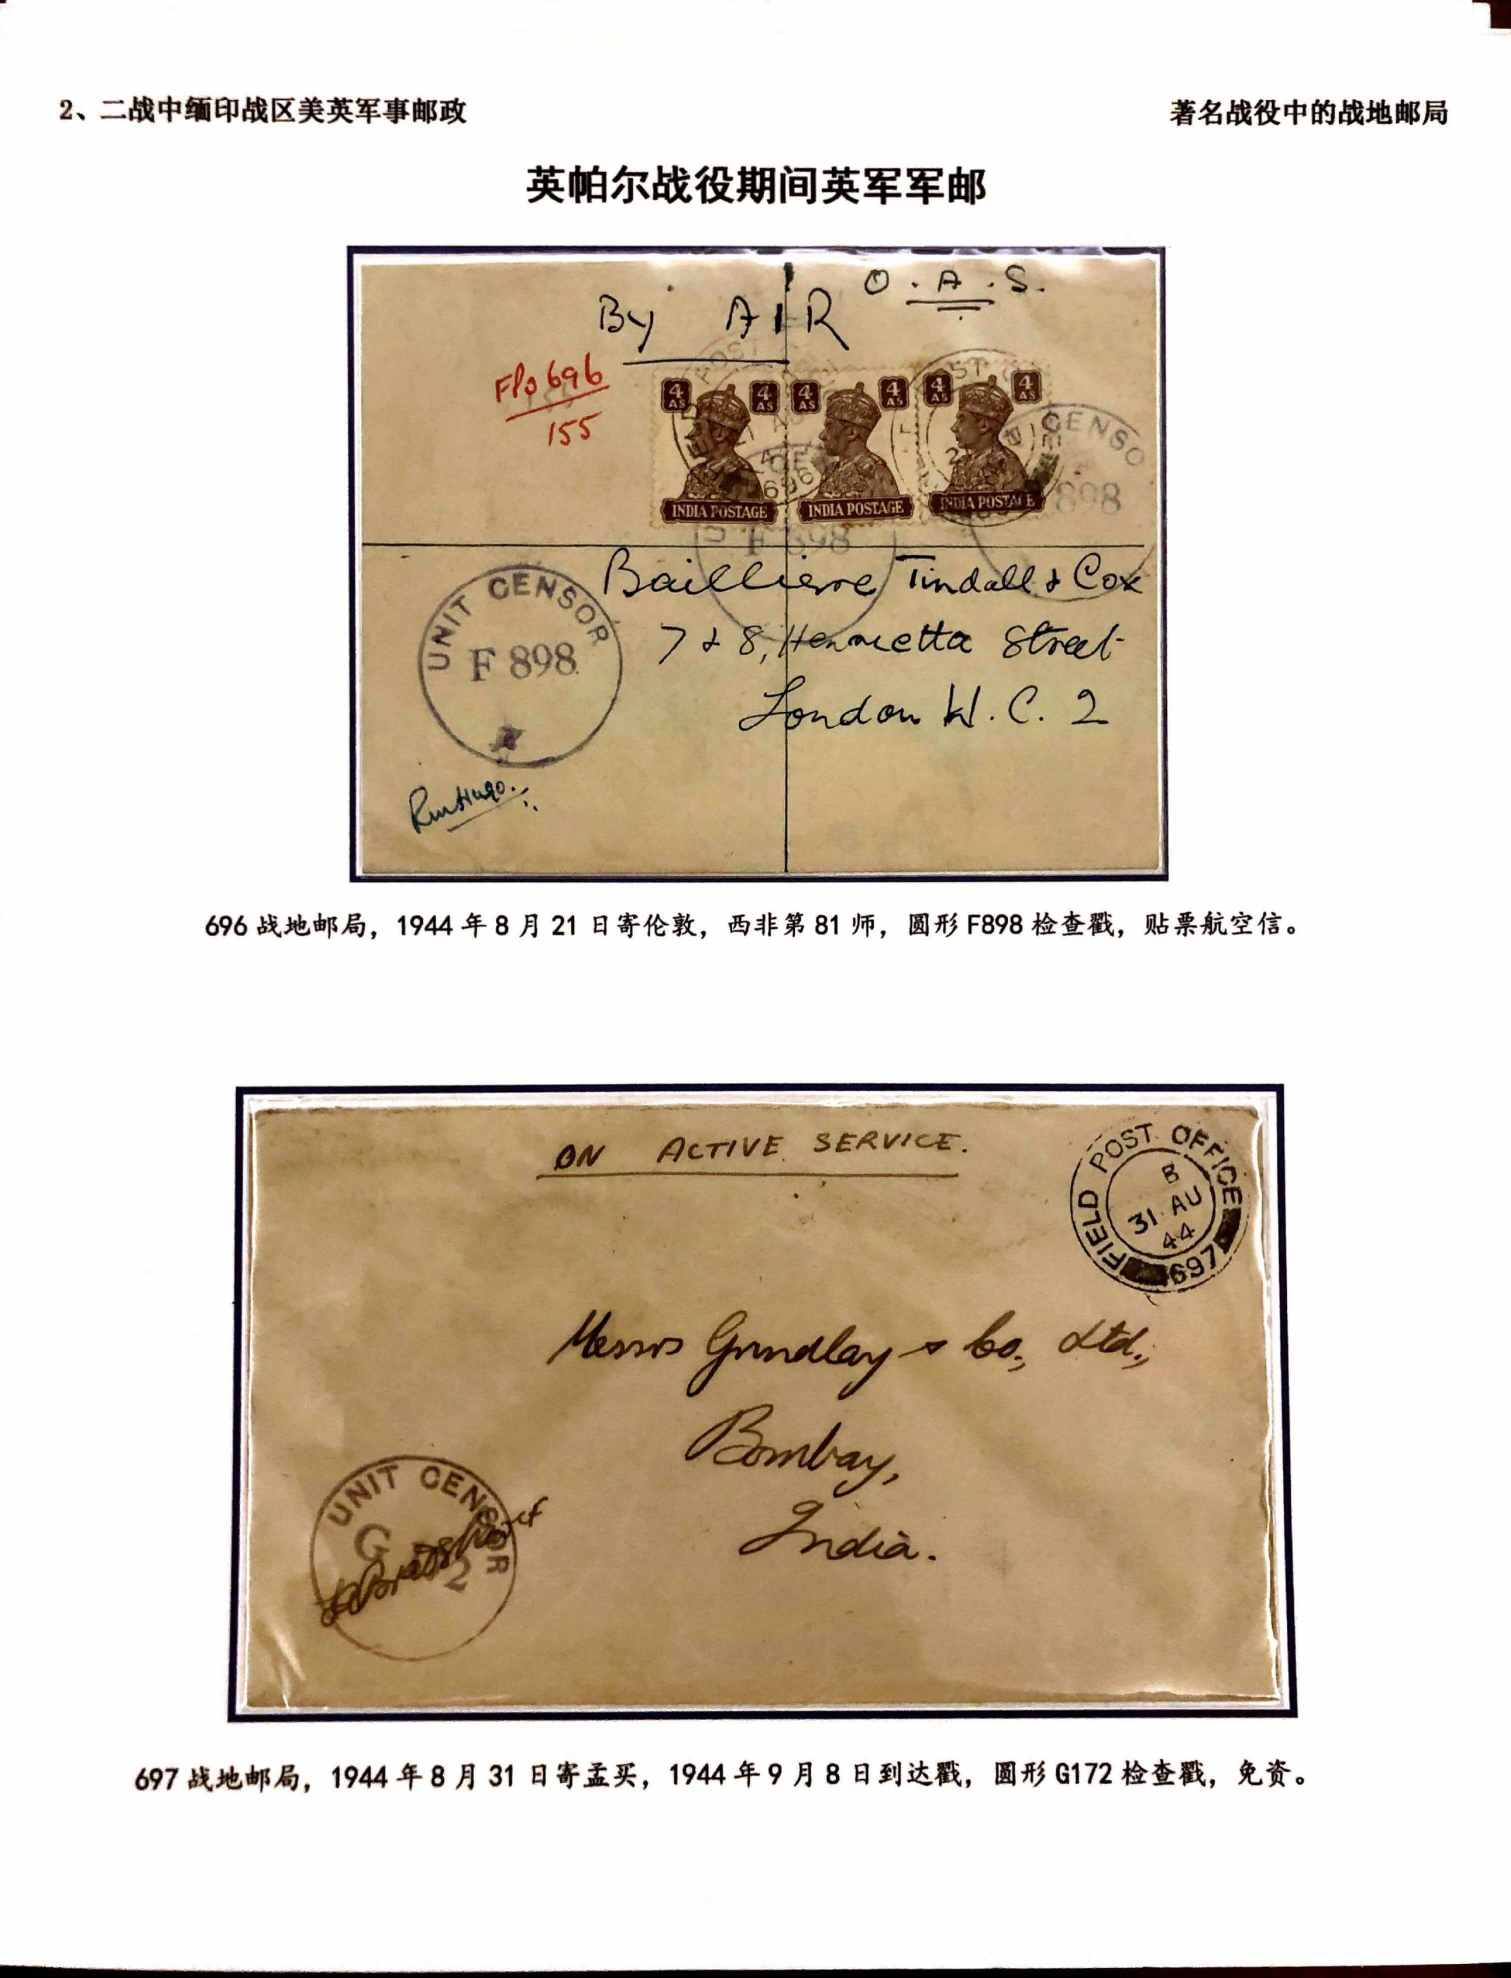 2、二战中缅印战区美英军事邮政
著名战役中的战地邮局
英帕尔战役期间英军军邮
O.A.S.
By AIR
FPO 696
155
4 AS 4 AS 4 AS 4 AS 4 AS 4 AS
INDIA POSTAGE INDIA POSTAGE INDIA POSTAGE
CENSO
898
F 898
UNIT CENSOR
F 898
Baillierre Tindall & Cox
7 & 8, Henrietta Street
London W.C. 2
696 战地邮局，1944 年 8 月 21 日寄伦敦，西非第 81 师，圆形 F898 检查戳，贴票航空信。
ON ACTIVE SERVICE.
FIELD POST OFFICE
B
31 AU
44
697
Messrs Grindlay & Co., Ltd.,
Bombay,
India.
UNIT CENSOR
G 2
697 战地邮局，1944 年 8 月 31 日寄孟买，1944 年 9 月 8 日到达戳，圆形 G172 检查戳，免资。